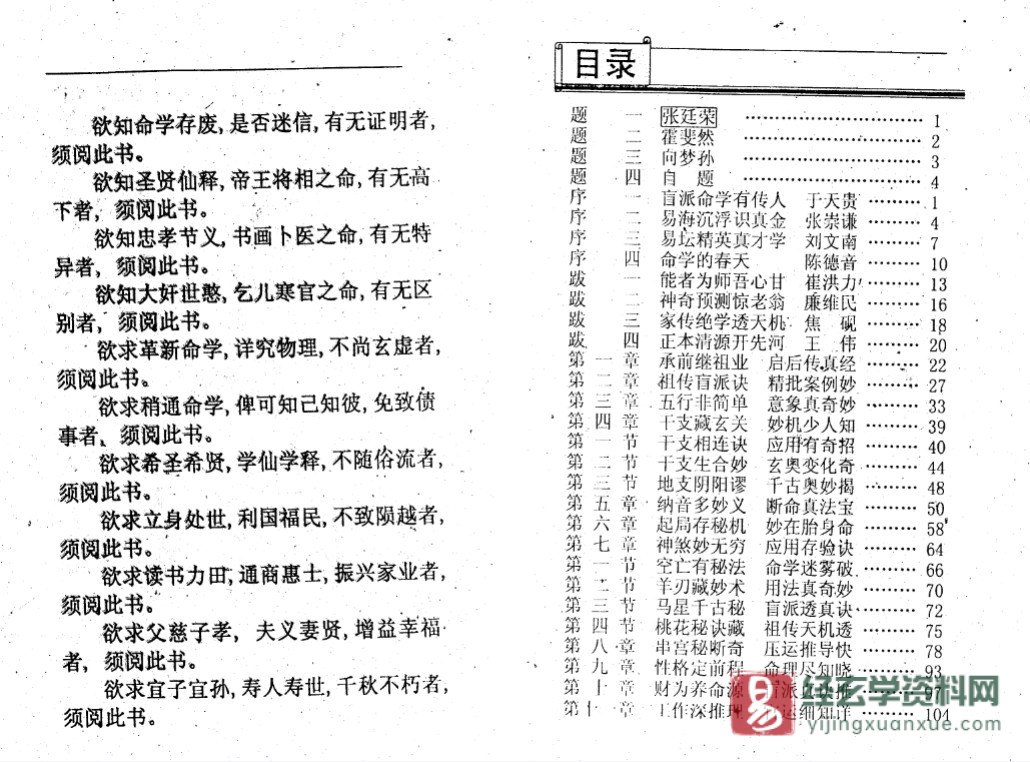 欲知命学存废,是否迷信,有无证明者,
须阅此书。
欲知圣贤仙释,帝王将相之命,有无高
下者,须阅此书。
欲知忠孝节义,书画卜医之命,有无特
异者,须阅此书。
欲知大奸世憨,乞儿寒官之命,有无区
别者,须阅此书。
欲求革新命学,详究物理,不尚玄虚者,
须阅此书。
欲求稍通命学,俾可知己知彼,免致偾
事者、须阅此书。
欲求希圣希贤,学仙学释,不随俗流者,
须阅此书。
欲求立身处世,利国福民,不致陨越者,
须阅此书。
欲求读书力田,通商惠士,振兴家业者,
须阅此书。
欲求父慈子孝,夫义妻贤,增益幸福
者,须阅此书。
欲求宜子宜孙,寿人寿世,千秋不朽者,
须阅此书。
目录
题 一 张廷荣 ……………………… 1
题 二 霍斐然 ……………………… 2
题 三 向梦孙 ……………………… 3
题 四 自 题 ……………………… 4
序 一 盲派命学有传人 于天贵 ……… 1
序 二 易海沉浮识真金 张崇谦 ……… 4
序 三 易坛精英真才学 刘文南 ……… 7
序 四 命学的春天 陈德音 ……… 10
跋 一 能者为师吾心甘 崔洪力 ……… 13
跋 二 神奇预测惊老翁 廉维民 ……… 16
跋 三 家传绝学透天机 焦 砚 ……… 18
跋 四 正本清源开先河 王 伟 ……… 20
第 一 章 承前继祖业 启后传真经 ……… 22
第 二 章 祖传盲派诀 精批案例妙 ……… 27
第 三 章 五行非简单 意象真奇妙 ……… 33
第 四 章 干支藏玄关 妙机少人知 ……… 39
第 一 节 干支相连诀 应用有奇招 ……… 40
第 二 节 干支生合妙 玄奥变化奇 ……… 44
第 三 节 地支阴阳谬 千古奥妙揭 ……… 48
第 五 章 纳音多妙义 断命真法宝 ……… 50
第 六 章 起局存秘机 妙在胎身命 ……… 58
第 七 章 神煞妙无穷 应用存验诀 ……… 64
第 一 节 空亡有秘法 命学迷雾破 ……… 66
第 二 节 羊刃藏妙术 用法真奇妙 ……… 70
第 三 节 马星千古秘 盲派透真诀 ……… 72
第 四 节 桃花秘诀藏 祖传天机透 ……… 75
第 八 章 串宫秘断奇 压运推导快 ……… 78
第 九 章 性格定前程 命理尽知晓 ……… 93
第 十 章 财为养命源 盲派 诀推 ……… 97
第十一章 工作深推理 运细知详 ……… 104
易 经玄学资料网
yijingxuanxue.com